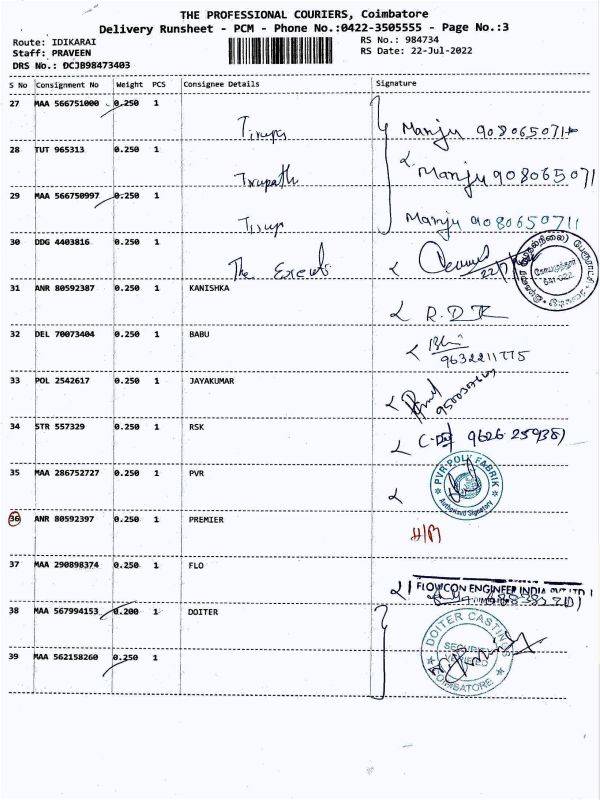 THE PROFESSIONAL COURIERS, Coimbatore
Delivery Runsheet - PCM - Phone No.:0422-3505555 - Page No.:3
Route: IDIKARAI
RS No.: 984734
Staff: PRAVEEN
RS Date: 22-Jul-2022
DRS No.: DCJB98473403
S No Consignment No Weight PCS Consignee Details Signature
27 MAA 566751000 0.250 1 Manju
28 TUT 965313 0.250 1 Tirupath Manju 908065071
29 MAA 566750997 0.250 1 Manju 9080650711
30 DDG 4403816 0.250 1 The
641 022
31 ANR 80592387 0.250 1 KANISHKA R.D.K
32 DEL 70073404 0.250 1 BABU
9632211775
33 POL 2542617 0.250 1 JAYAKUMAR
34 STR 557329 0.250 1 RSK
35 MAA 286752727 0.250 1 PVR PVR POLY FABRIK
Authorised Signatory
36 ANR 80592397 0.250 1 PREMIER
37 MAA 290898374 0.250 1 FLO
FLOWCON ENGINEER INDIA PVT LTD
38 MAA 567994153 0.200 1 DOITER DOITER CASTINGS
SECURITY
39 MAA 562158260 0.250 1
COIMBATORE